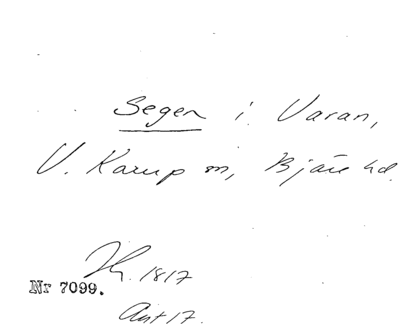 Segen i Varan,
V. Karup sn, Bjäre hd.
1817
Nr 7099.
Ant 17.